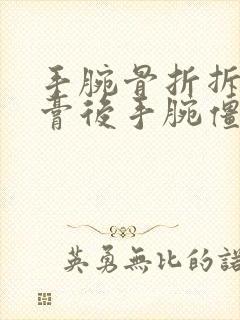 手腕骨折拆
膏後手腕僵
英勇無比的諾